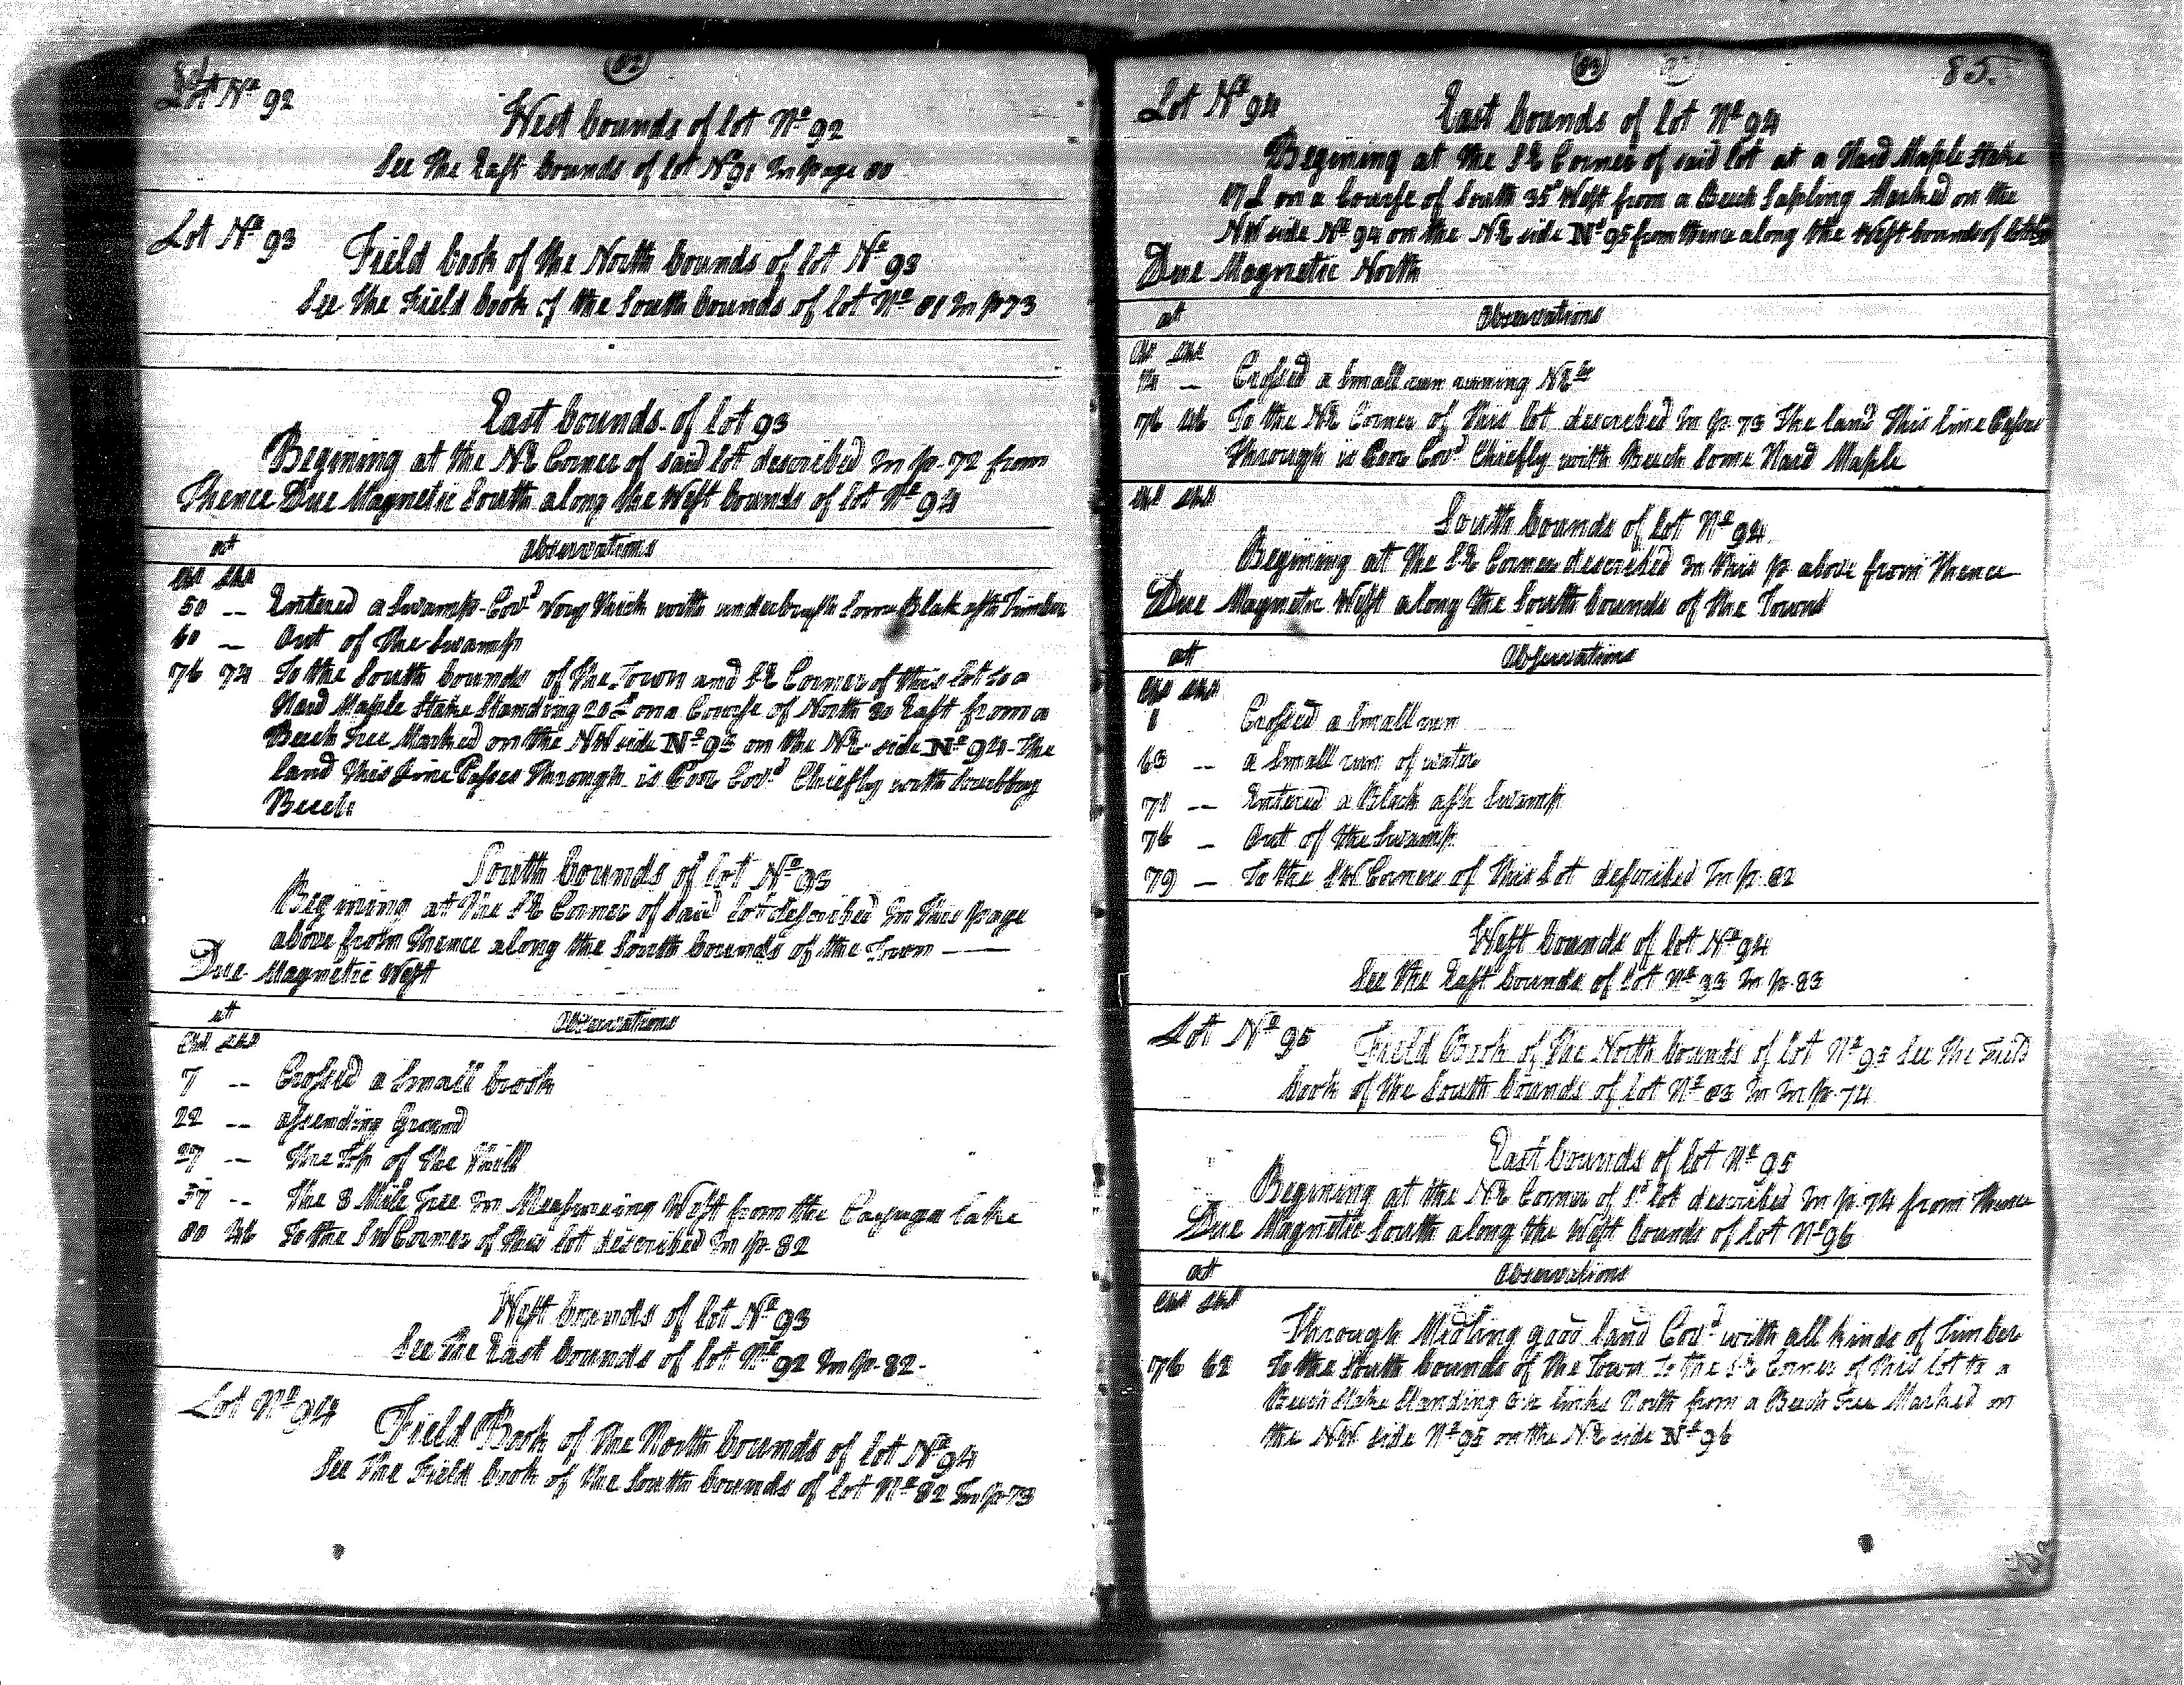 Lot Nº 92
West bounds of lot Nº 92
See the East bounds of lot Nº 91 In page 80
Lot Nº 93
Field book of the North bounds of lot Nº 93
See the Field book of the South bounds of lot Nº 81 In p 73
East bounds of lot 93
Begining at the NE Corner of said lot described In p. 72 from
Thence Due Magnetic South along the West bounds of lot Nº 94
at Observations
Chs Lks
50 -- Entered a Swamp Covd Very thick with underbrush Some Blak ash Timber
60 -- Out of the Swamp
76 74 To the South bounds of the Town and SE Corner of this lot to a
Hard Maple Stake Standing 20 L on a Course of North 80 East from a
Beech Tree Marked on the NW side Nº 93 on the NE side Nº 94 - The
land this line Passes through is Poor Covd Chiefly with Scrubbuy
Beech
South bounds of lot Nº 93
Begining at the SE Corner of said lot described In this page
above from thence along the South bounds of the Town
Due Magnetic West
at Observations
Chs Lks
7 -- Crossed a Small brook
22 -- assending Ground
27 -- The Top of the Hill
37 -- The 8 Mile Tree In Measureing West from the Cayuga lake
80 46 To the SW Corner of this lot described In p. 82
West bounds of lot Nº 93
See the East bounds of lot Nº 92 In p. 82-
Lot Nº 94
Field Book of the North bounds of lot Nº 94
See the Field book of the South bounds of lot Nº 82 In p. 73
85.
Lot Nº 94
East bounds of lot Nº 94
Begining at the SE Corner of said lot at a Hard Maple Stake
17 L on a Course of South 35 West from a Beech Sapling Marked on the
NW side Nº 94 on the NE side Nº 95 from thence along the West bounds of lot
Due Magnetic North
at Observations
Chs Lks
-- Crossed a Small run runing NE
76 46 To the NE Corner of this lot described In p. 73 The land this line Passes
through is Poor Covd Chiefly with Beech Some Hard Maple
Chs Lks
South bounds of lot Nº 94
Begining at the SE Corner described In this p above from thence
Due Magnetic West along the South bounds of the Town
at Observations
Chs Lks
1 Crossed a Small run
63 -- a Small run of water
71 -- Entered a Black ash Swamp
76 -- Out of the Swamp
79 -- To the SW Corner of this Lot described In p. 82
West bounds of lot Nº 94
See the East bounds of lot Nº 93 In p. 83
Lot Nº 95
Field Book of the North bounds of lot Nº 95 See the Field
book of the South bounds of lot Nº 83 In In p. 74
East bounds of lot Nº 95
Begining at the NE Corner of sd lot described In p. 74 from thence
Due Magnetic South along the West bounds of lot Nº 96
at Observations
Chs Lks
Through Midling good land Covd with all kinds of Timber
76 62 To the South bounds of the Town to the SE Corner of this lot to a
Beech Stake Standing links North from a Beech Tree Marked on
the NW side Nº 95 on the NE side Nº 96